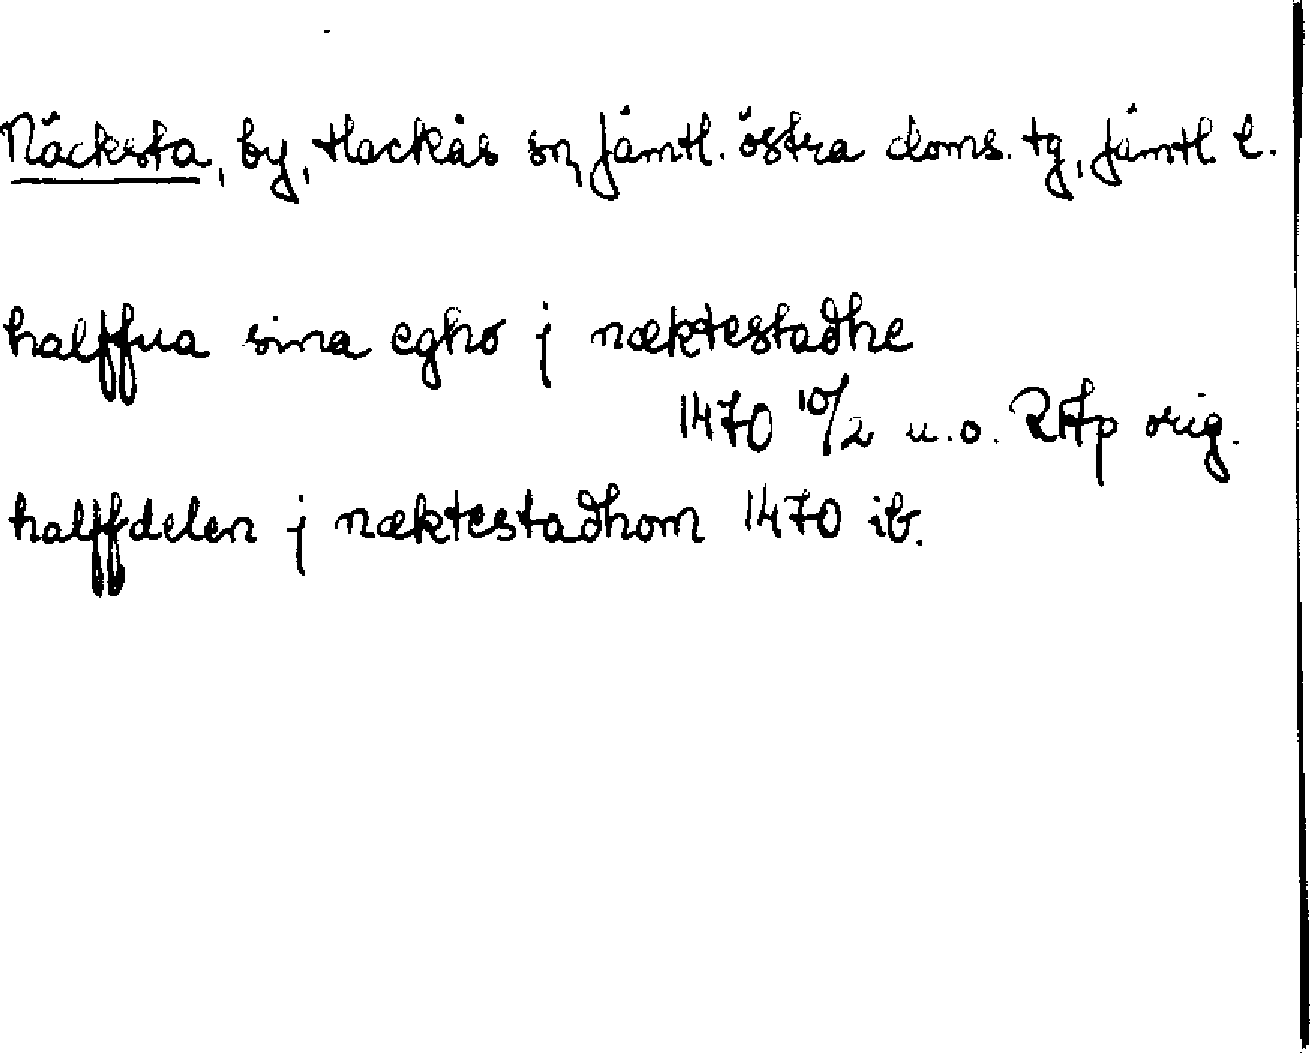 Näcksta, by, Hackås sn, Jämtl. östra doms. tg, Jämtl. l.
halffua sina egho j næktestadhe
1470 10/2 u.o. RAp orig.
halffdelen j næktestadhom 1470 ib.